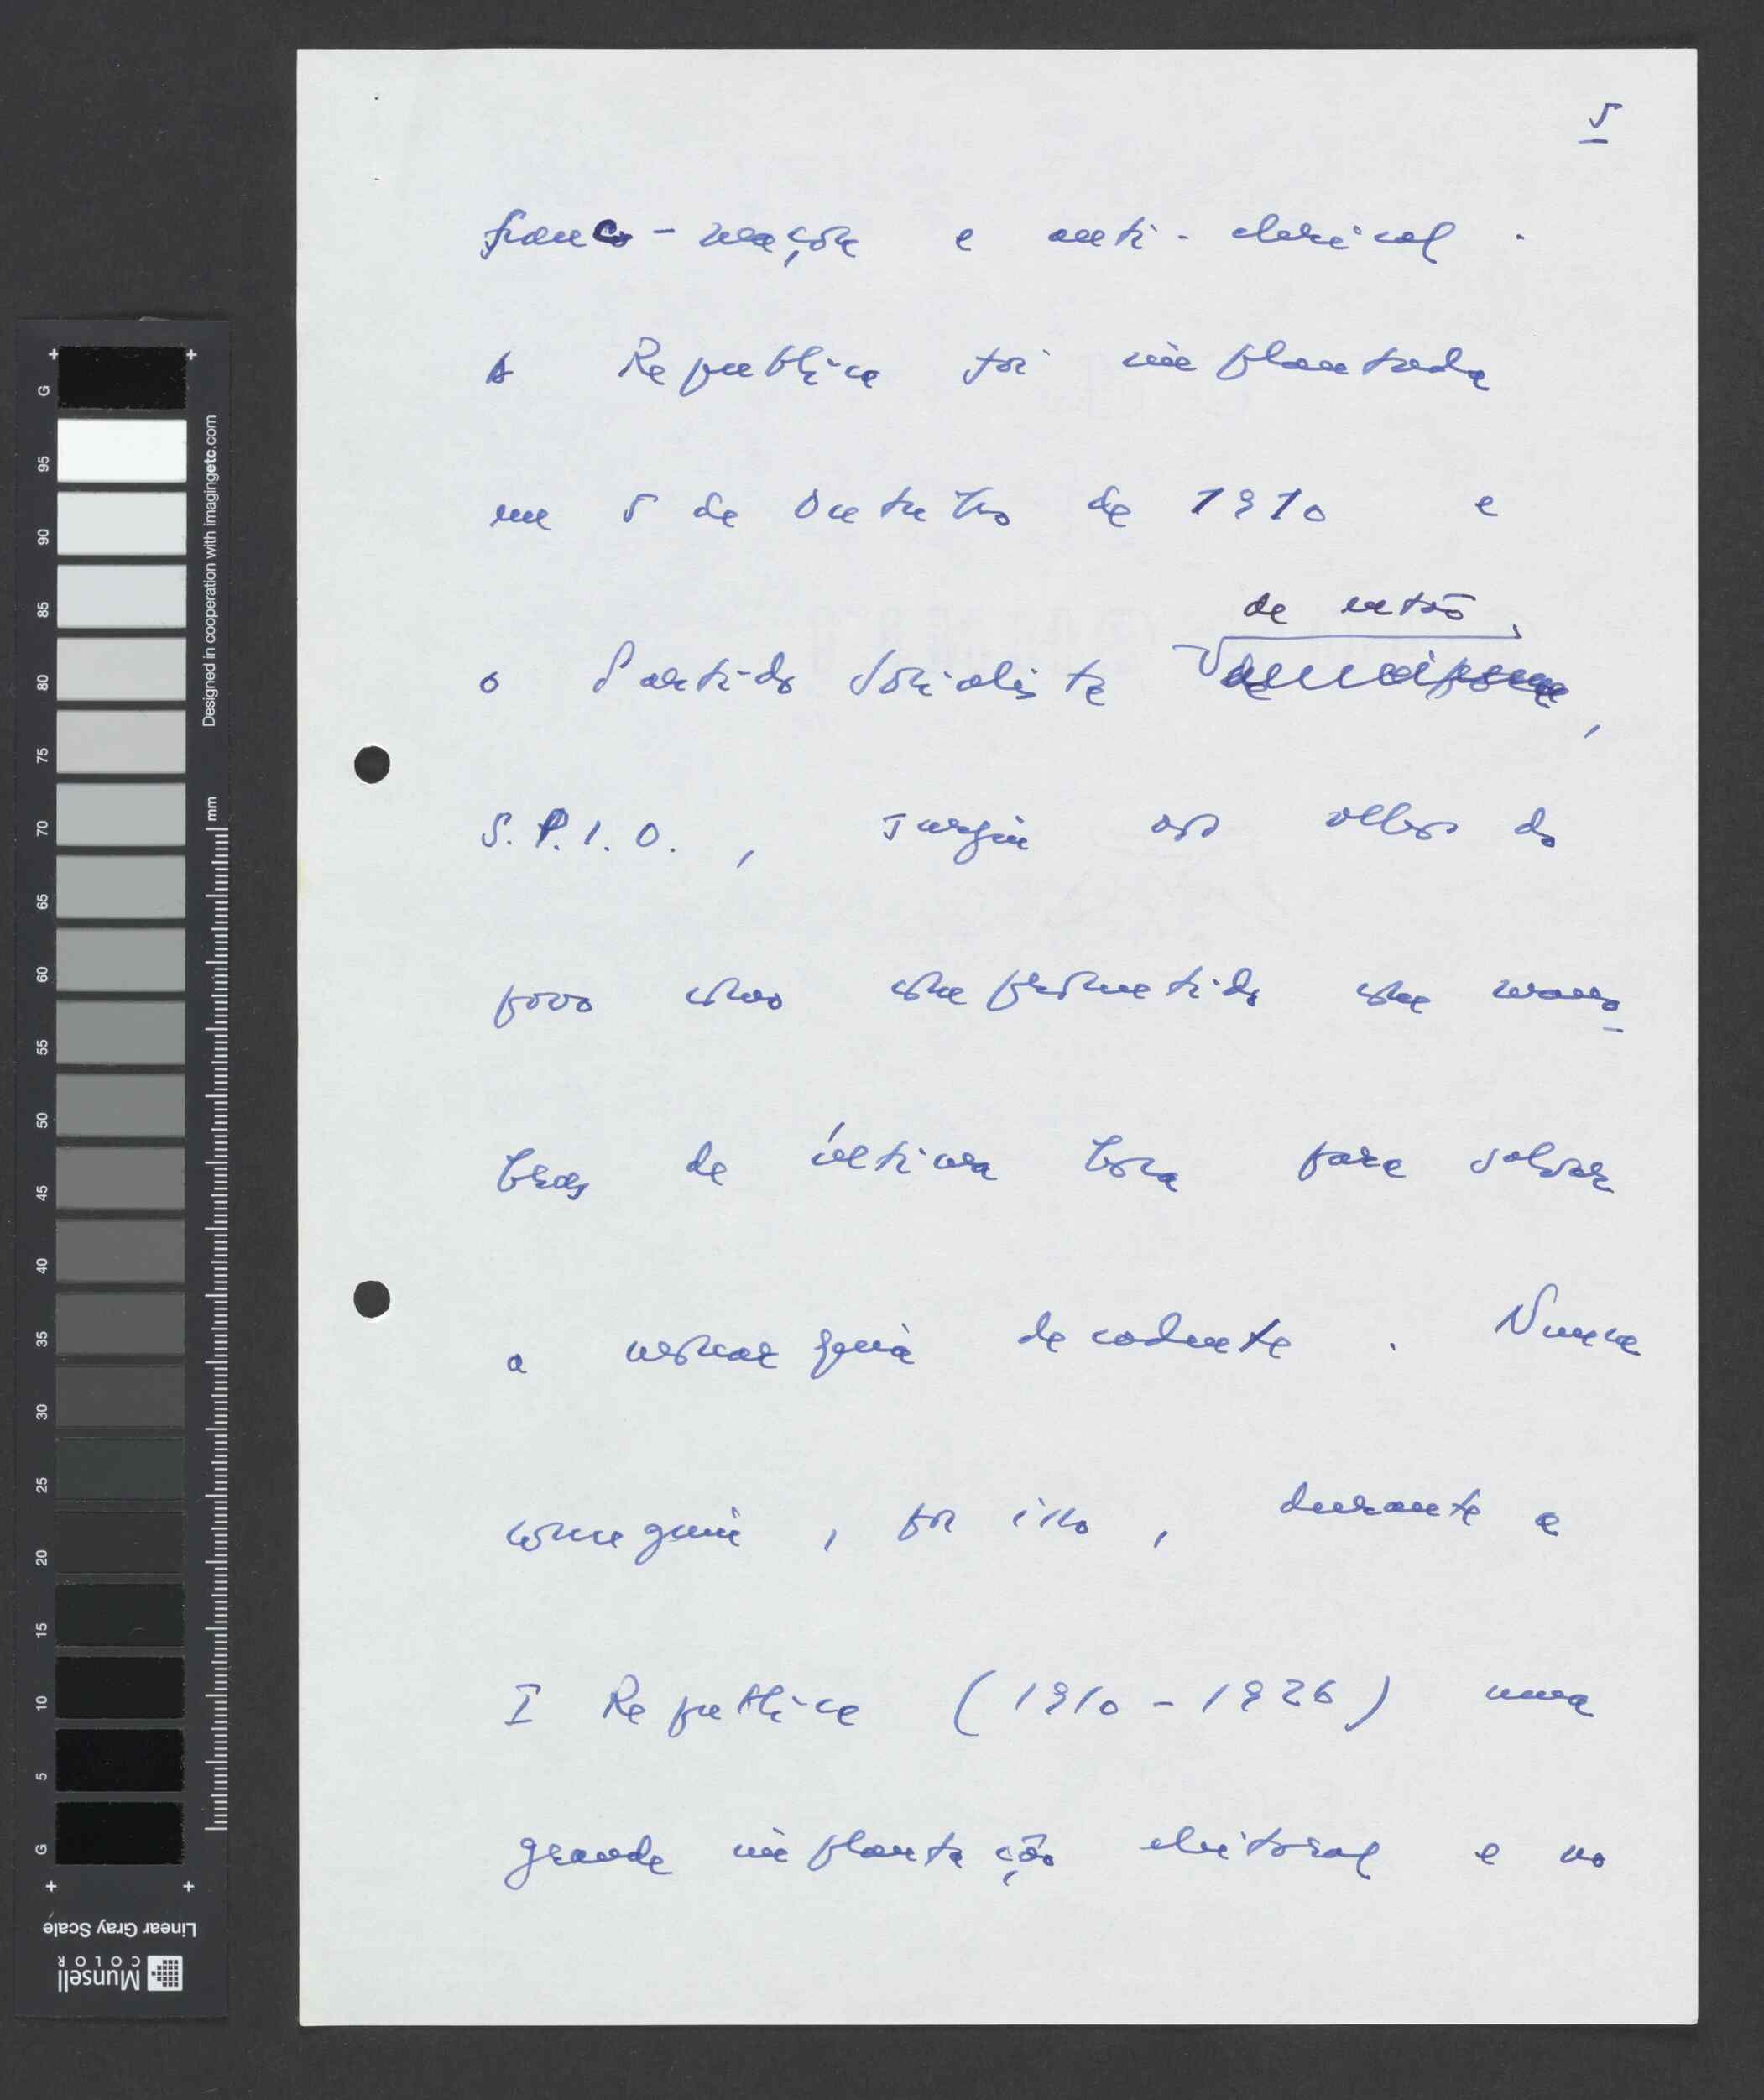 5
franco-maçon e anti-clerical.
A República foi implantada
em 5 de Outubro de 1910 e
de então,
o Partido Socialista
,
S.P.I.O., surgiu aos olhos do
povo como comprometido com mano
bras de última hora para salvar
a monarquia decadente. Nunca
conseguiu, por isso, durante a
I República (1910-1926) uma
grande implantação eleitoral e no
G
95
90
85
80
75
70
65
60
55
50
45
40
35
30
25
20
15
10
5
G
Designed in cooperation with imagingetc.com
mm
Linear Gray Scale
Munsell
COLOR